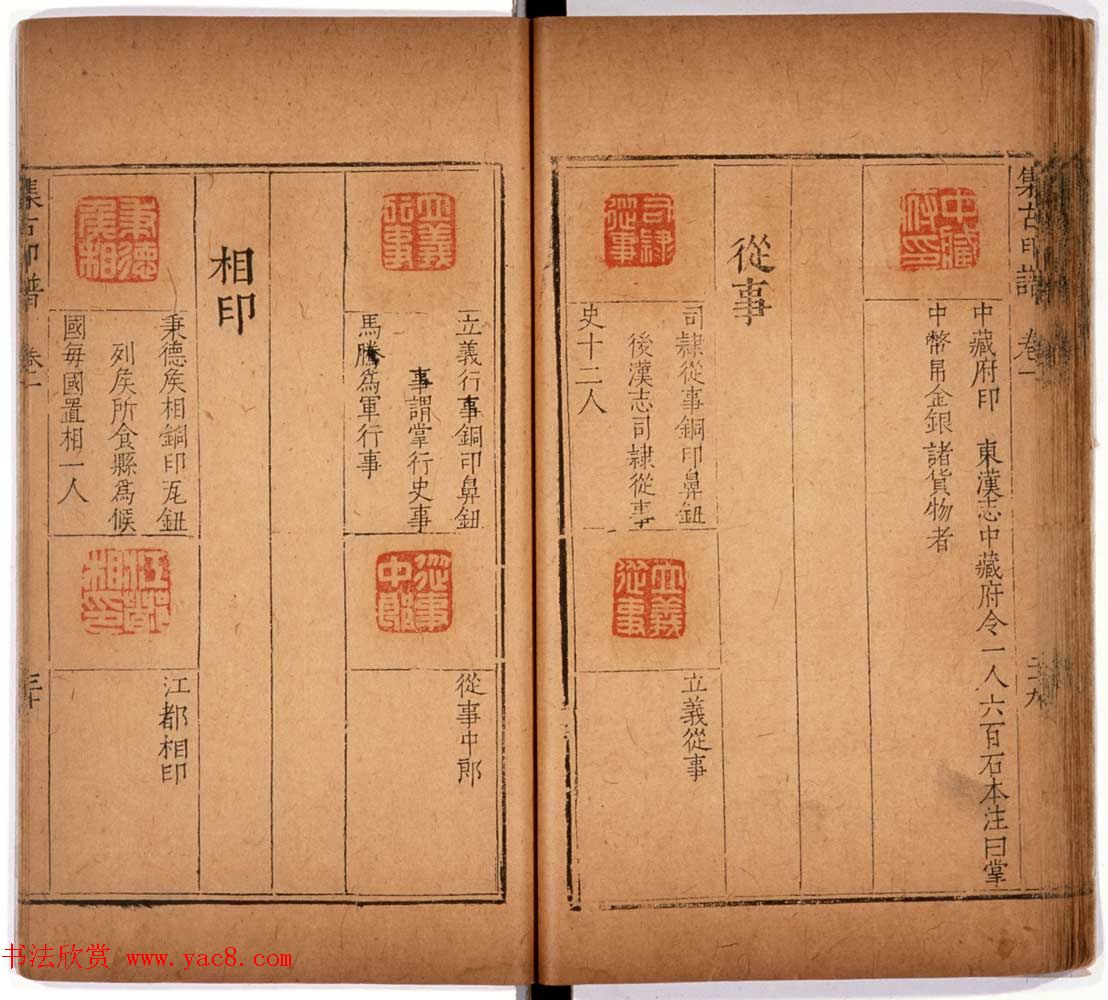 集古印譜 卷一 二十九
中藏府印
中藏府印 東漢志中藏府令一人六百石本注曰掌
中幣帛金銀諸貨物者
從事
司隷從事
司隷從事銅印鼻鈕
後漢志司隷從事
史十二人
立義從事
立義從事
立義行事
立義行事銅印鼻鈕
事謂掌行史事
馬騰為軍行事
從事中郎
從事中郎
相印
秉德矦相
秉德矦相銅印瓦鈕
列矦所食縣為候
國每國置相一人
江都相印
江都相印
集古印譜 卷二 三十
书法欣赏 www.yac8.com